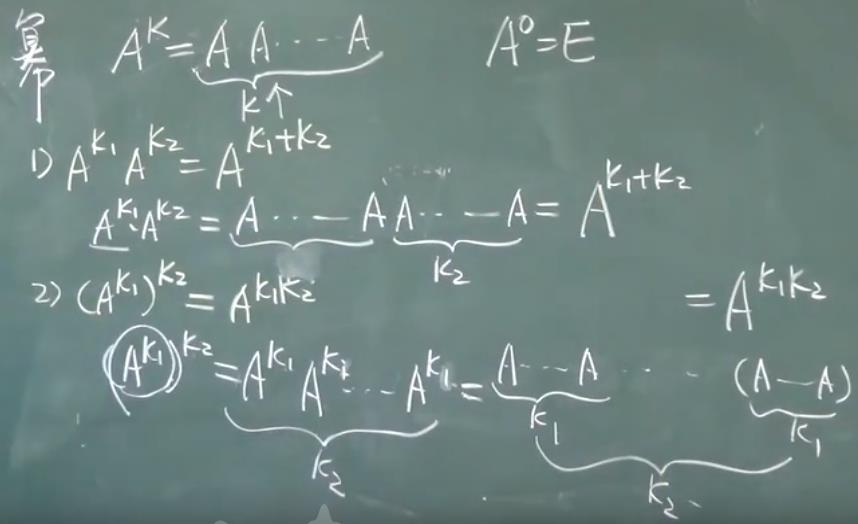 幂 A^K = A A ··· A  A^0 = E
K个
1) A^{K_1} A^{K_2} = A^{K_1+K_2}
A^{K_1}·A^{K_2} = A ··· A A ··· A = A^{K_1+K_2}
K_2
2) (A^{K_1})^{K_2} = A^{K_1K_2}  = A^{K_1K_2}
(A^{K_1})^{K_2} = A^{K_1} A^{K_1} ··· A^{K_1} = A ··· A ··· (A — A)
K_1 K_1
K_2 K_2